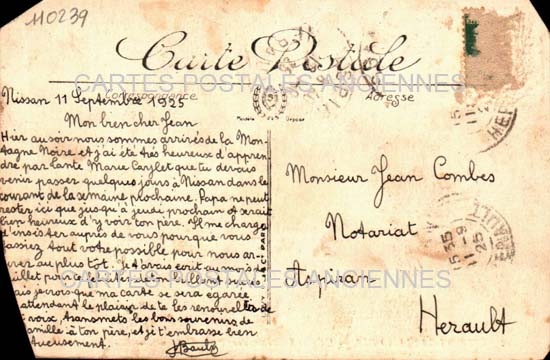 110239
Carte Postale
CARTES POSTALES ANCIENNES
Correspondance
Adresse
Nissan 11 Septembre 1925
Mon bien cher Jean
Hier au soir nous sommes arrivés de la Mon-
tagne Noire et j'ai été très heureux d'appren-
dre par tante Marie que tu devais
venir passer quelques jours à Nissan dans le
courant de la semaine prochaine. Papa ne peut
rester ici que jusqu'à jeudi prochain et serait
bien heureux d'y voir ton père. Il me charge
d'insister auprès de vous pourque vous
fassiez tout votre possible pour nous ar-
river au plus tôt. Je t'avais écrit au mois
illet pour
mais je crois que ma carte se sera égarée
attendant le plaisir de te les renouveler de
voix, transmets les bons souvenirs de
famille à ton père, et je t'embrasse bien
affectueusement.
Monsieur Jean Combes
Notariat
Aspiran
Herault
CARTES POSTALES ANCIENNES